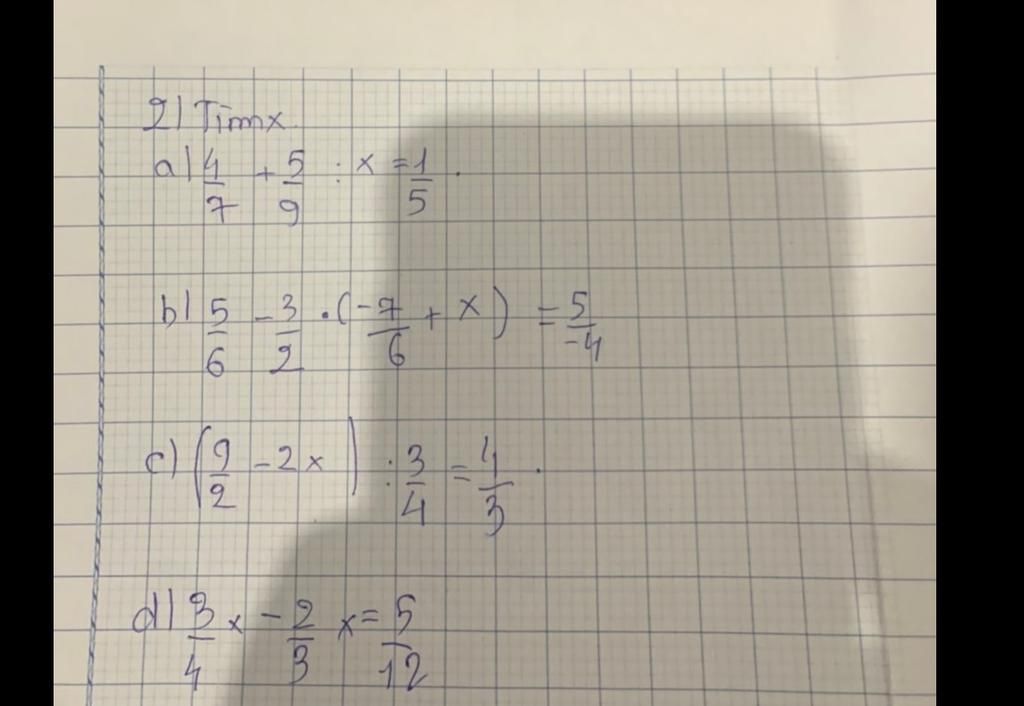 2| Tìm x
a| 4/7 + 5/9 : x = 1/5 .
b| 5/6 - 3/2 . (-7/6 + x) = 5/-4
c) (9/2 - 2x) : 3/4 = 4/3 .
d| 3/4 x - 2/3 x = 5/12